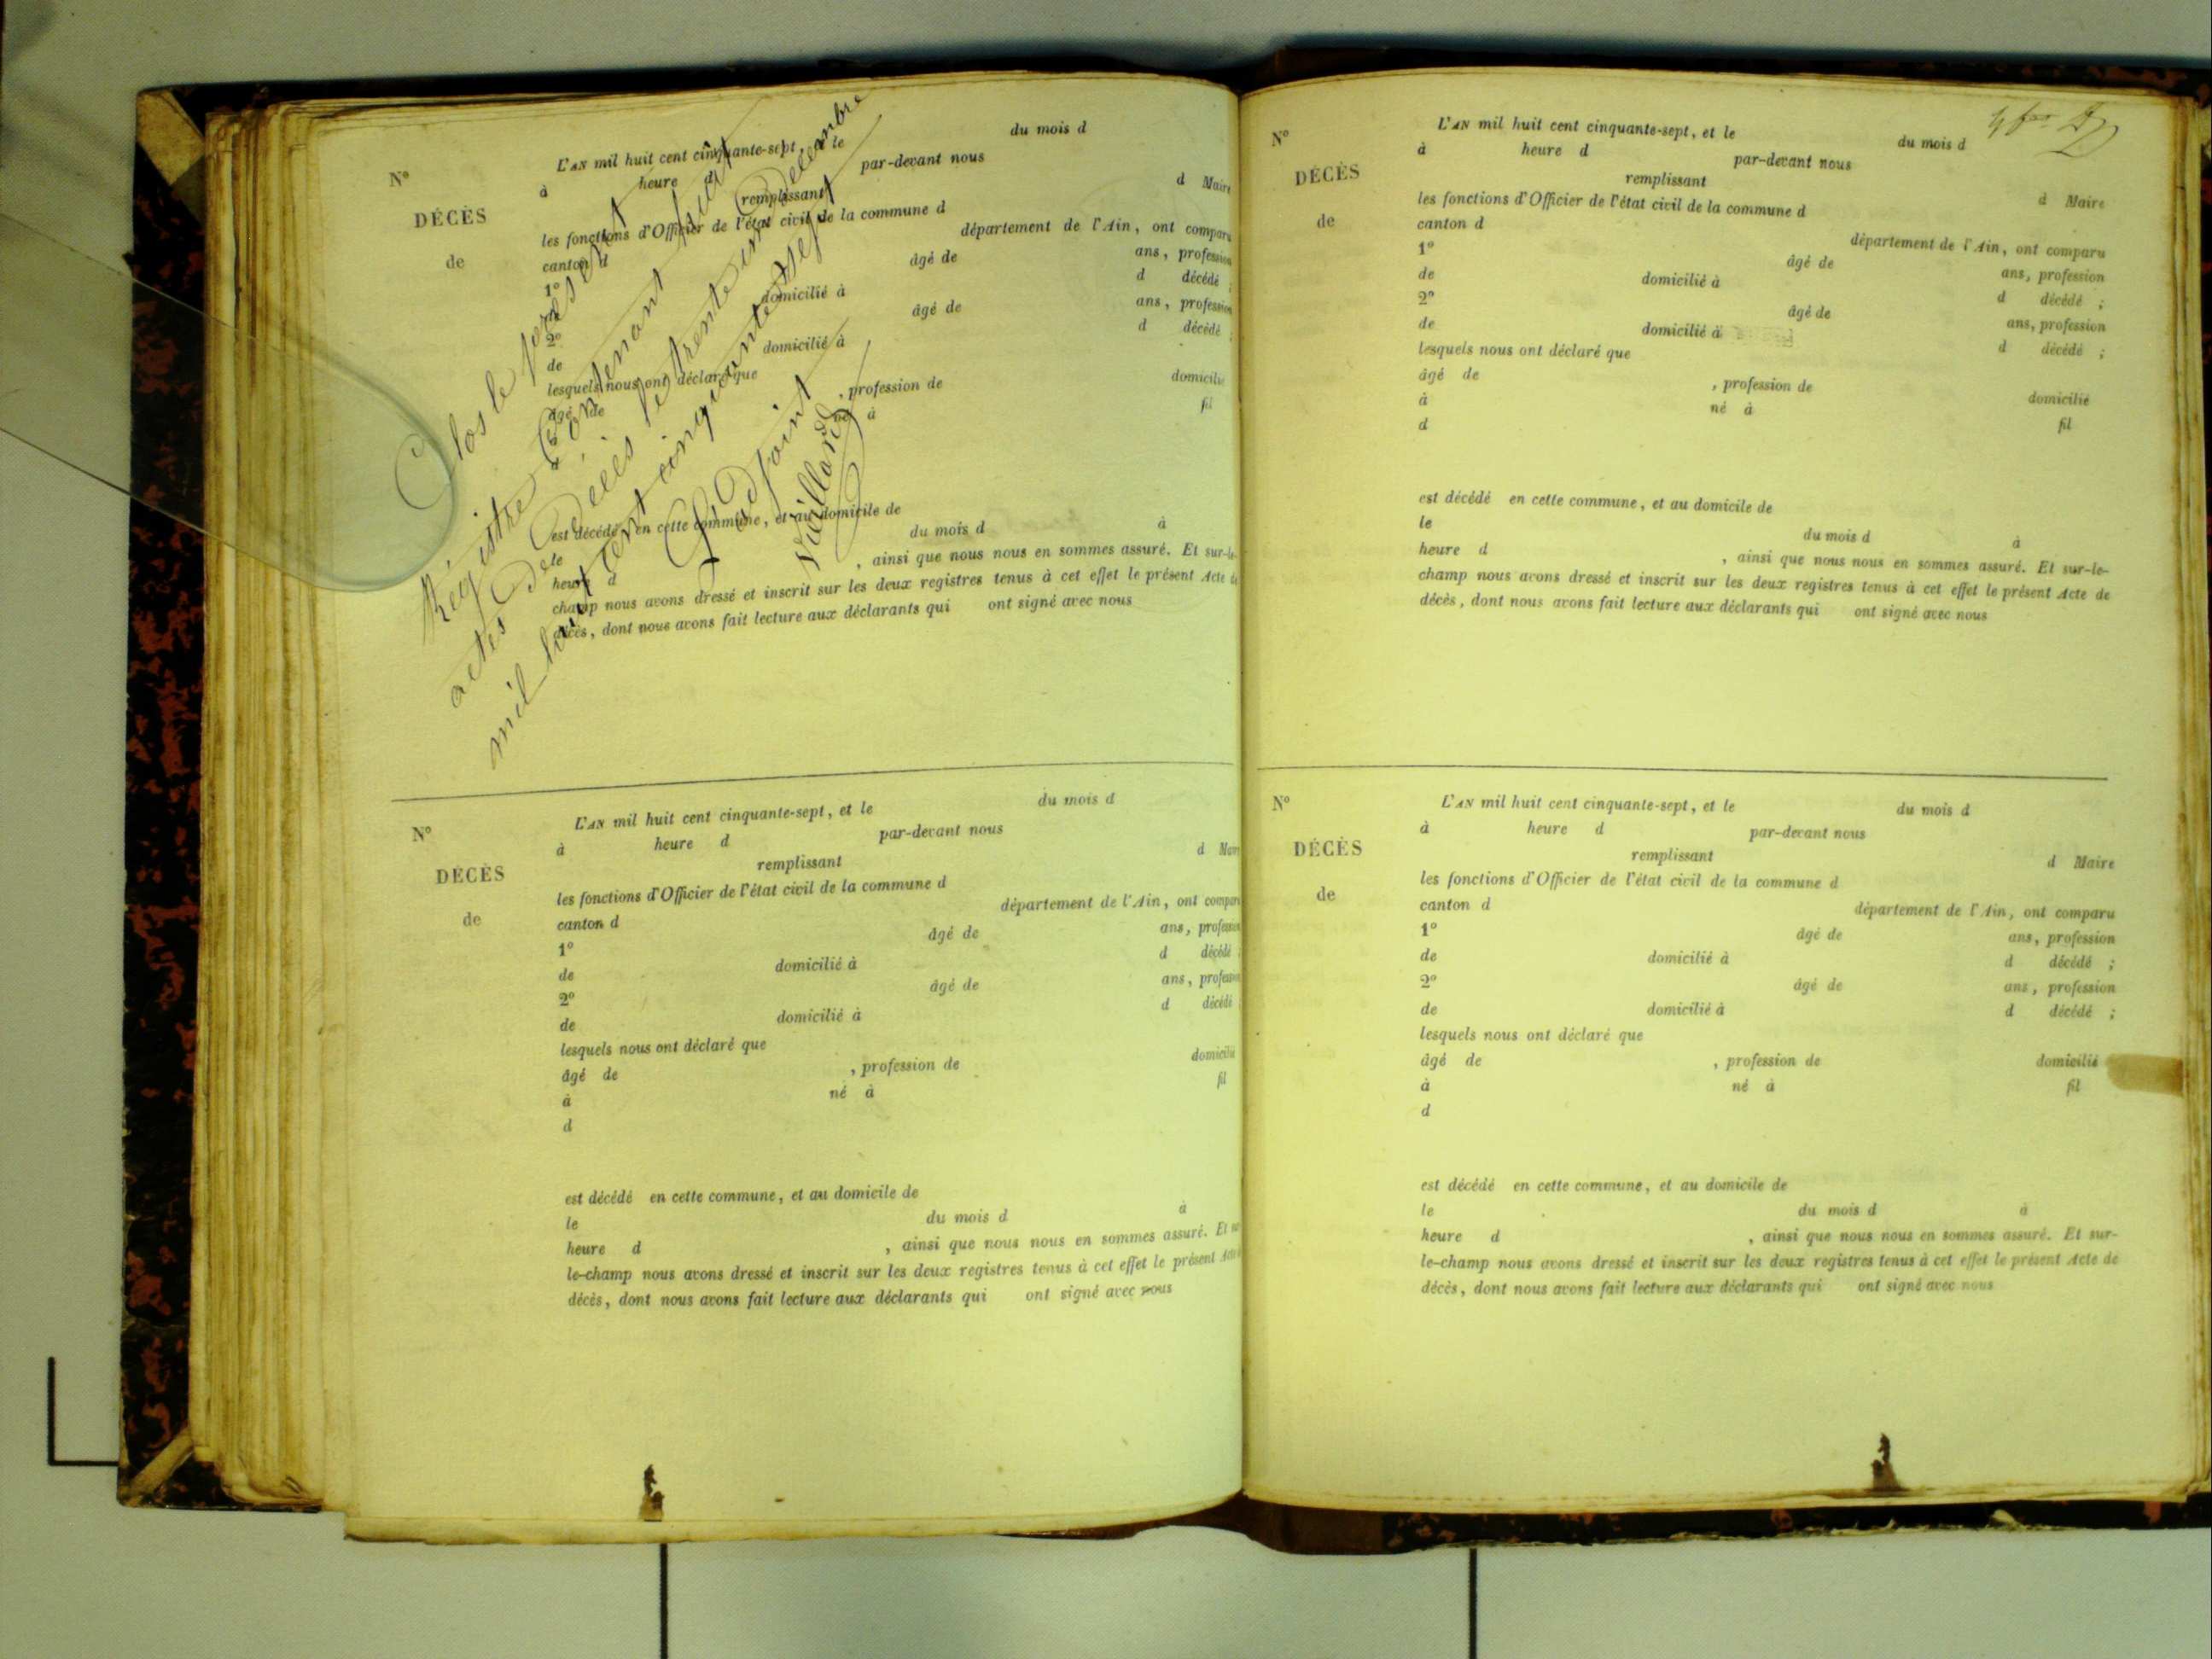 Nº
DÉCÈS
de
L'AN mil huit cent cinquante-sept, et le du mois d
à heure d par-devant nous
remplissant d Maire
les fonctions d'Officier de l'état civil de la commune d
canton d département de l'Ain, ont comparu
1º âgé de ans, profession
de domicilié à d décédé ;
2º âgé de ans, profession
de domicilié à d décédé ;
lesquels nous ont déclaré que
âgé de , profession de domicilié
à né à fil
d
est décédé en cette commune, et au domicile de
le du mois d à
heure d , ainsi que nous nous en sommes assuré. Et sur-le-
champ nous avons dressé et inscrit sur les deux registres tenus à cet effet le présent Acte de
décès, dont nous avons fait lecture aux déclarants qui ont signé avec nous
Clos le présent
Régistre Contenant
actes De Décès le trente un Décembre
mil huit cent cinquante sept
L'adjoint
Vuillard
Nº
DÉCÈS
de
L'AN mil huit cent cinquante-sept, et le du mois d
à heure d par-devant nous
remplissant d Maire
les fonctions d'Officier de l'état civil de la commune d
canton d département de l'Ain, ont comparu
1º âgé de ans, profession
de domicilié à d décédé
2º âgé de ans, profession
de domicilié à d décédé
lesquels nous ont déclaré que
âgé de , profession de domicilié
à né à fil
d
est décédé en cette commune, et au domicile de
le du mois d à
heure d , ainsi que nous nous en sommes assuré. Et sur
le-champ nous avons dressé et inscrit sur les deux registres tenus à cet effet le présent Acte
décès, dont nous avons fait lecture aux déclarants qui ont signé avec nous
Nº
DÉCÈS
de
L'AN mil huit cent cinquante-sept, et le du mois d
à heure d par-devant nous
remplissant d Maire
les fonctions d'Officier de l'état civil de la commune d
canton d département de l'Ain, ont comparu
1º âgé de ans, profession
de domicilié à d décédé ;
2º âgé de ans, profession
de domicilié à d décédé ;
lesquels nous ont déclaré que
âgé de , profession de domicilié
à né à fil
d
est décédé en cette commune, et au domicile de
le du mois d à
heure d , ainsi que nous nous en sommes assuré. Et sur-le-
champ nous avons dressé et inscrit sur les deux registres tenus à cet effet le présent Acte de
décès, dont nous avons fait lecture aux déclarants qui ont signé avec nous
Nº
DÉCÈS
de
L'AN mil huit cent cinquante-sept, et le du mois d
à heure d par-devant nous
remplissant d Maire
les fonctions d'Officier de l'état civil de la commune d
canton d département de l'Ain, ont comparu
1º âgé de ans, profession
de domicilié à d décédé ;
2º âgé de ans, profession
de domicilié à d décédé ;
lesquels nous ont déclaré que
âgé de , profession de domicilié
à né à fil
d
est décédé en cette commune, et au domicile de
le du mois d à
heure d , ainsi que nous nous en sommes assuré. Et sur-
le-champ nous avons dressé et inscrit sur les deux registres tenus à cet effet le présent Acte de
décès, dont nous avons fait lecture aux déclarants qui ont signé avec nous